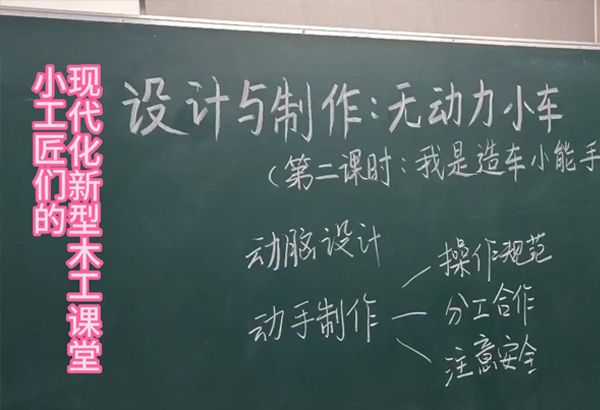 小工匠们的
现代化新型木工课堂
设计与制作：无动力小车
（第二课时：我是造车小能手
动脑设计
动手制作
操作规范
分工合作
注意安全